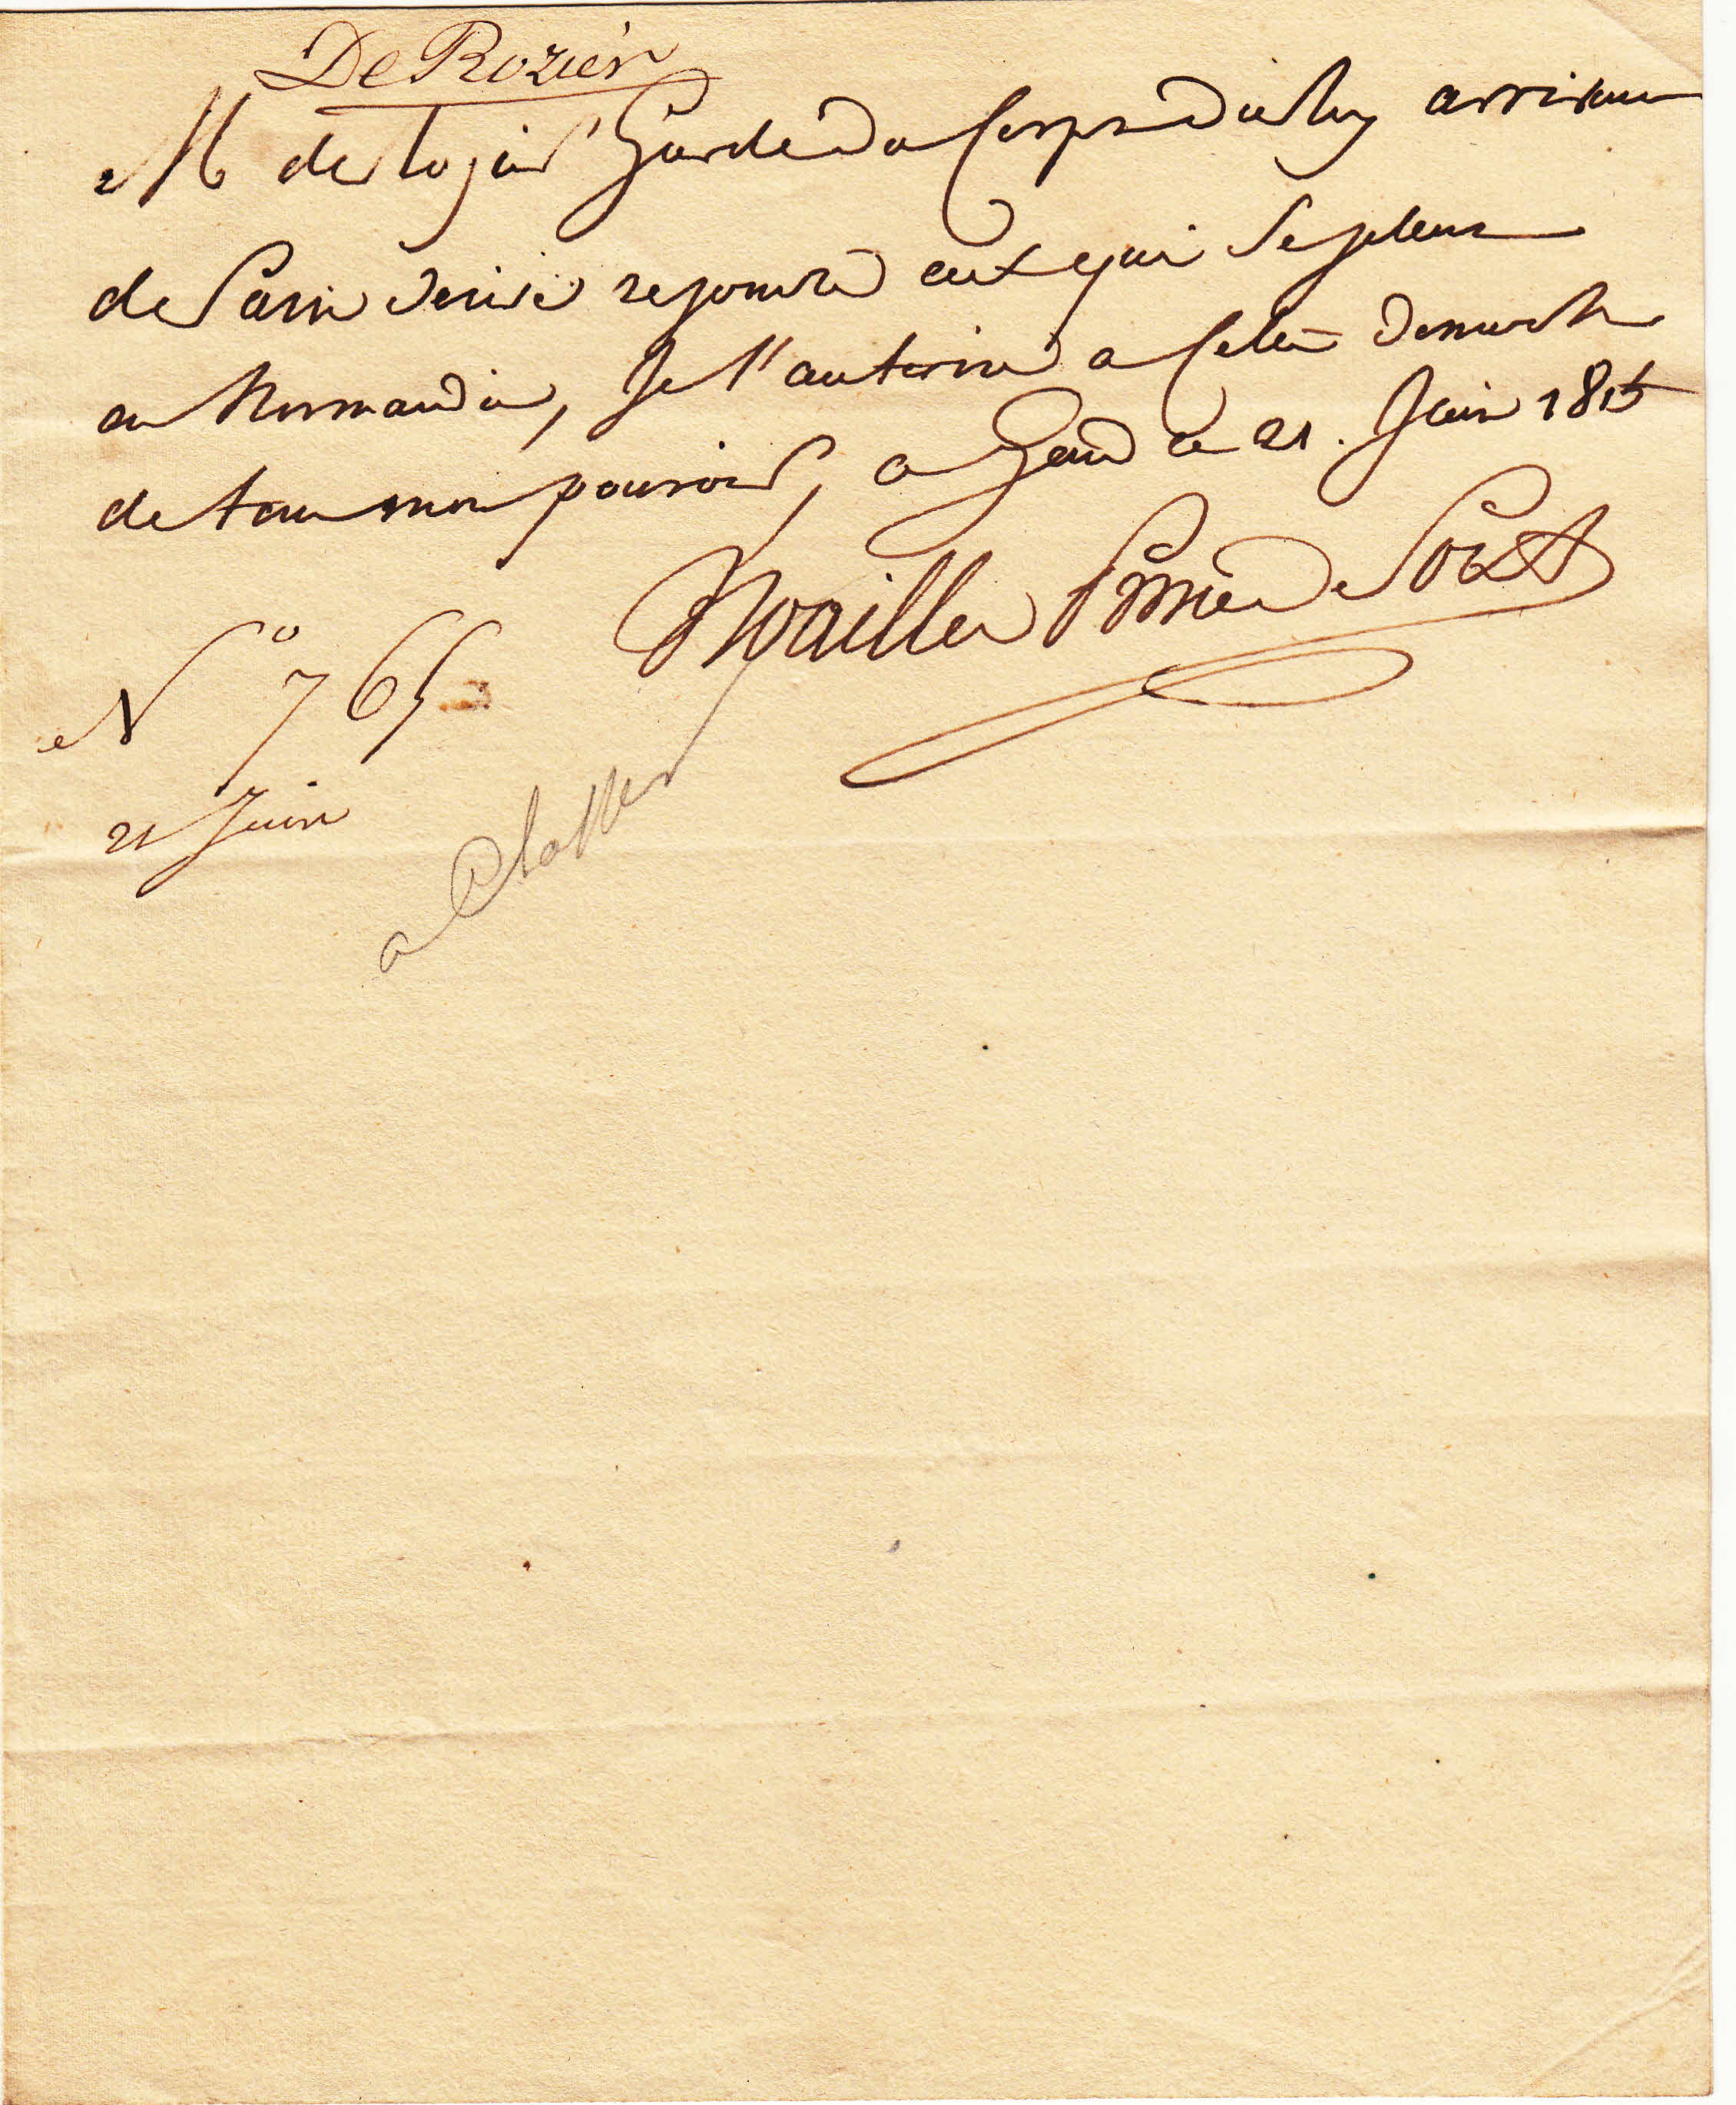 De Rozier
M de Rozier Garde du Corps du Roy arrivant
de Paris desire rejoindre ceux qui se jettent
en Normandie, Je l'autorise a cette demarche
de tout mon pouvoir, a Gand ce 21. Juin 1815
Noailles Prince de Poix
N° 765
21 Juin
a Classer